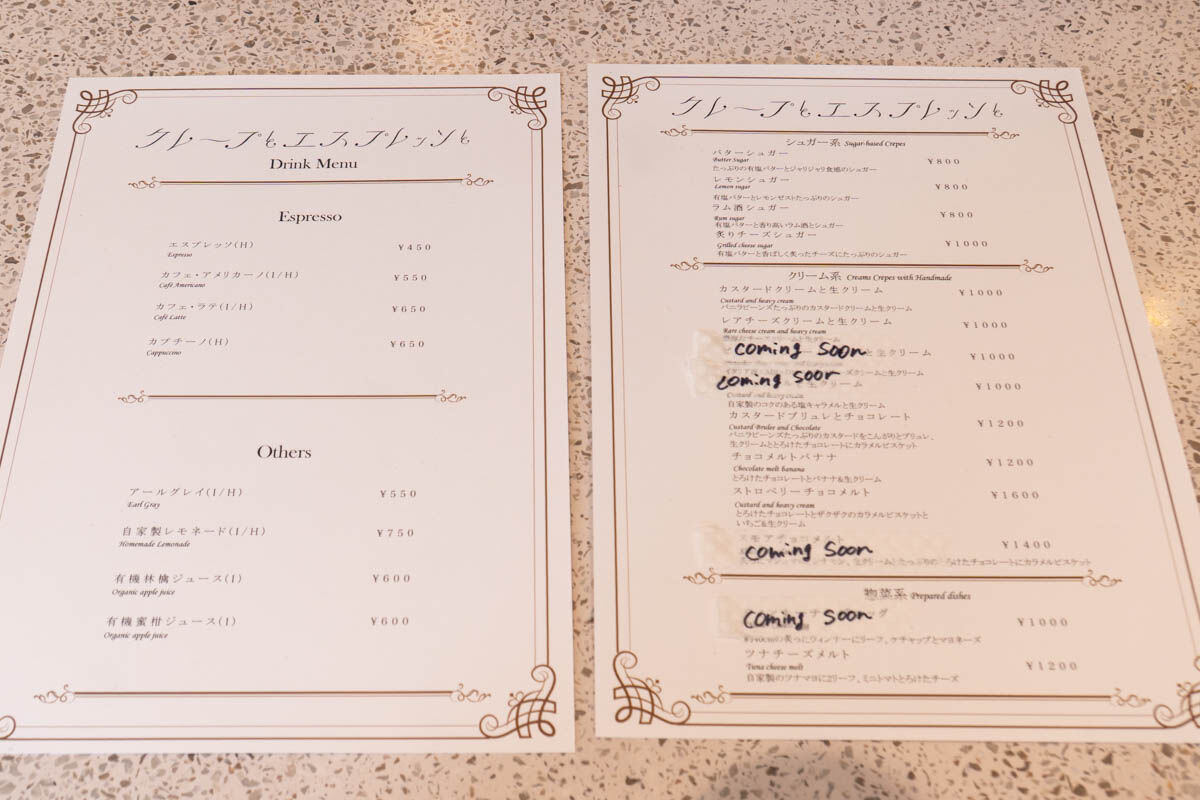 クレープとエスプレッソと
Drink Menu
Espresso
エスプレッソ(H) ¥450
Espresso
カフェ・アメリカーノ(I/H) ¥550
Café Americano
カフェ・ラテ(I/H) ¥650
Café Latte
カプチーノ(H) ¥650
Cappuccino
Others
アールグレイ(I/H) ¥550
Earl Gray
自家製レモネード(I/H) ¥750
Homemade Lemonade
有機林檎ジュース(I) ¥600
Organic apple juice
有機蜜柑ジュース(I) ¥600
Organic apple juice
クレープとエスプレッソと
シュガー系 Sugar-based Crepes
バターシュガー ¥800
Butter Sugar
たっぷりの有塩バターとジャリジャリ食感のシュガー
レモンシュガー ¥800
Lemon sugar
有塩バターとレモンゼストたっぷりのシュガー
ラム酒シュガー ¥800
Rum sugar
有塩バターと香り高いラム酒とシュガー
炙りチーズシュガー ¥1000
Grilled cheese sugar
有塩バターと香ばしく炙ったチーズにたっぷりのシュガー
クリーム系 Creams Crepes with Handmade
カスタードクリームと生クリーム ¥1000
Custard and heavy cream
バニラビーンズたっぷりのカスタードクリームと生クリーム
レアチーズクリームと生クリーム ¥1000
Rare cheese cream and heavy cream
チーズクリームと生クリーム
coming soon と生クリーム ¥1000
ーズクリームと生クリーム
coming soon クリーム ¥1000
Custard and heavy cream
自家製のコクのある塩キャラメルと生クリーム
カスタードブリュレとチョコレート ¥1200
Custard Brulee and Chocolate
バニラビーンズたっぷりのカスタードをこんがりとブリュレ、
生クリームととろけたチョコレートにカラメルビスケット
チョコメルトバナナ ¥1200
Chocolate melt banana
とろけたチョコレートとバナナ&生クリーム
ストロベリーチョコメルト ¥1600
Custard and heavy cream
とろけたチョコレートとザクザクのカラメルビスケットと
いちご&生クリーム
スモアチョコメルト ¥1400
coming soon
生クリームとたっぷりのとろけたチョコレートにカラメルビスケット
惣菜系 Prepared dishes
coming soon ッグ ¥1000
炙ったウィンナーにリーフ、ケチャップとマヨネーズ
ツナチーズメルト ¥1200
Tuna cheese melt
自家製のツナマヨに2リーフ、ミニトマトとろけたチーズ